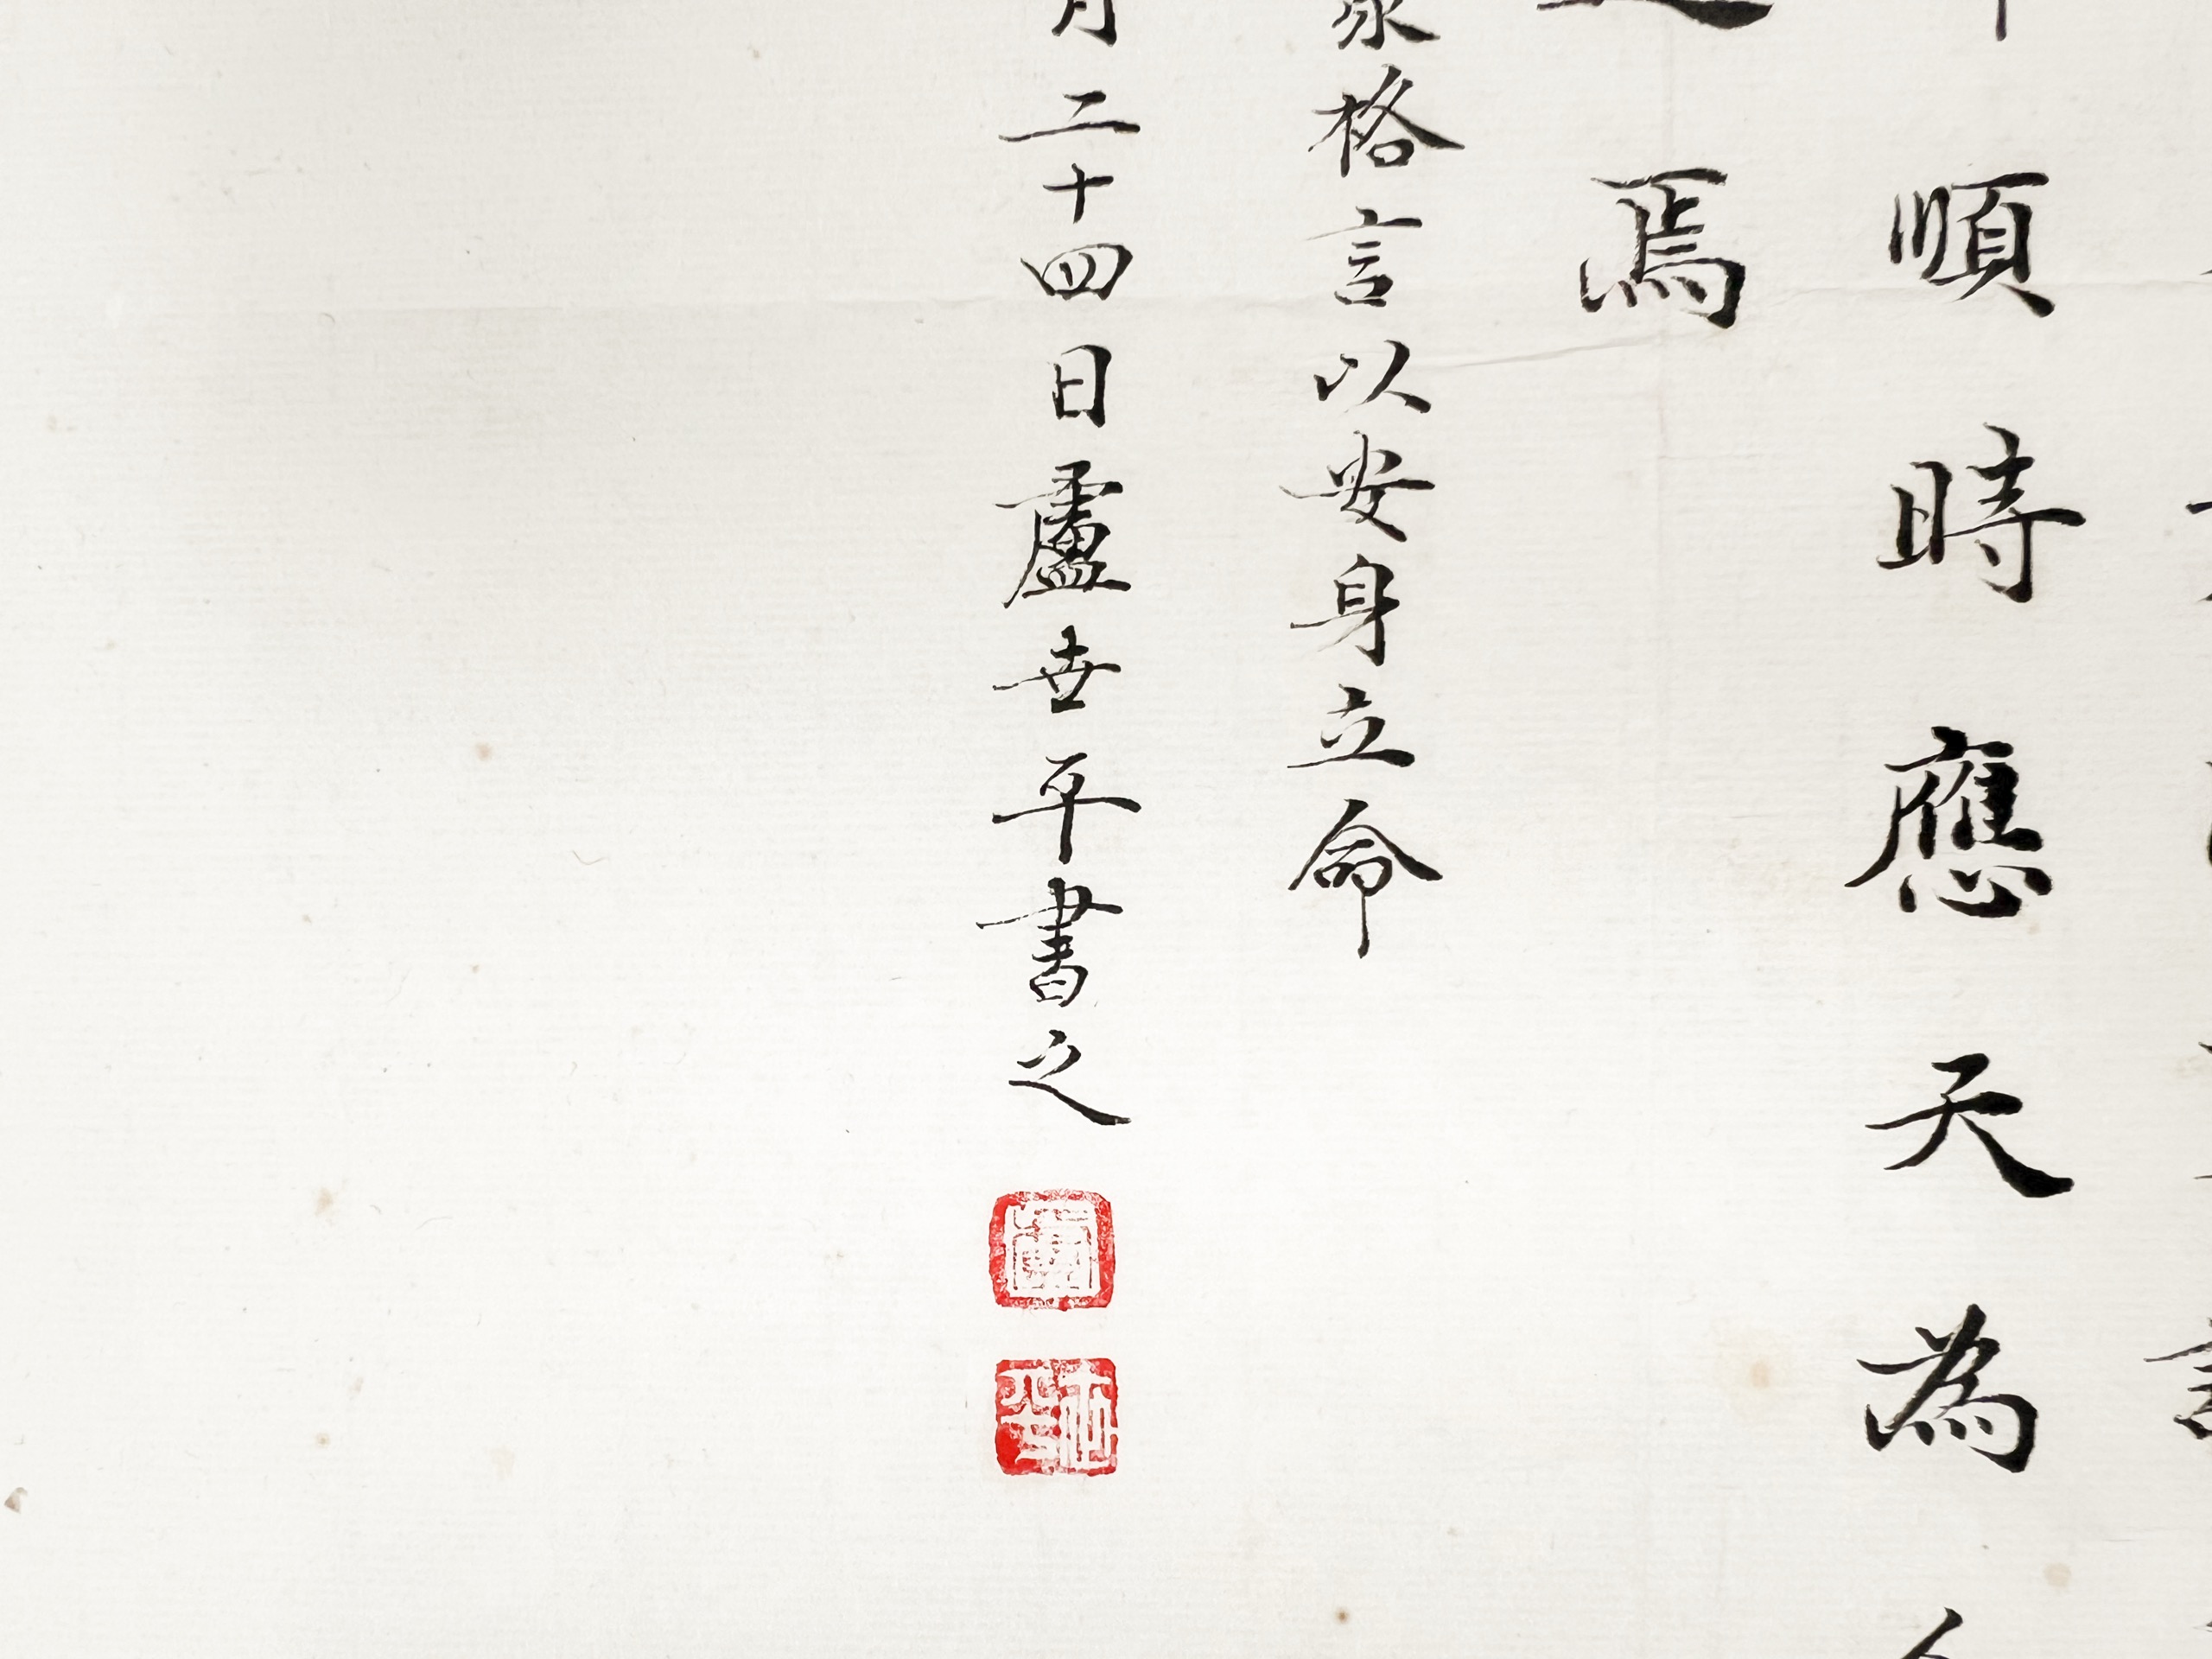 順時應天為
焉
家格言以安身立命
月二十四日盧世平書之
盧
世平